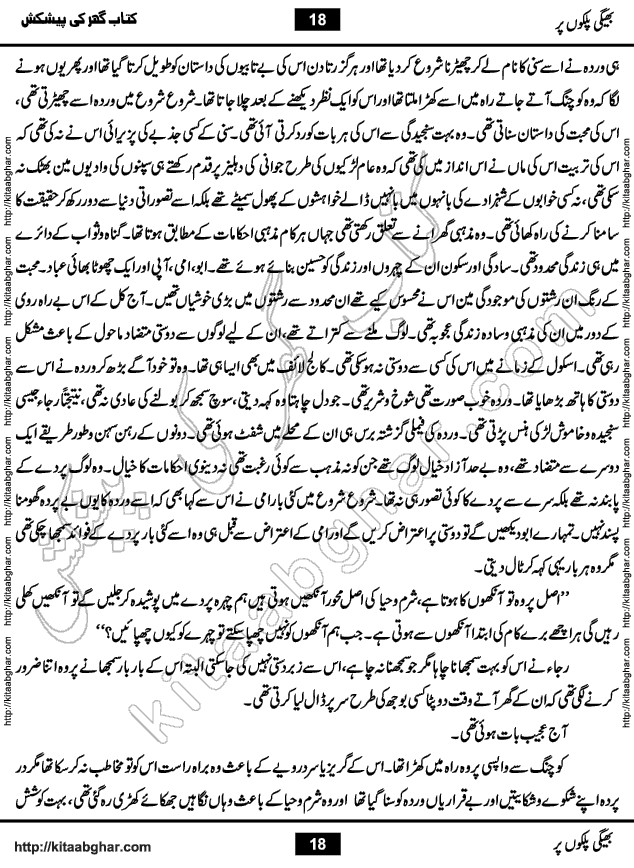 بھیگی پلکوں پر
18
کتاب گھر کی پیشکش
ہی وردہ نے اسے سنی کا نام لے کر چھیڑنا شروع کر دیا تھا اور ہر گزرتا دن اس کی بے تابیوں کی داستان کو طویل کرتا گیا تھا اور پھر یوں ہونے
لگا کہ وہ کوچنگ آتے جاتے راہ میں اسے کھڑا ملتا تھا اور اس کو ایک نظر دیکھنے کے بعد چلا جاتا تھا۔ شروع شروع میں وردہ اسے چھیڑتی تھی،
اس کی محبت کی داستان سناتی تھی۔ وہ بہت سنجیدگی سے اس کی ہر بات کو رد کرتی آئی تھی۔ سنی کے کسی جذبے کی پزیرائی اس نے نہ کی تھی کہ
اس کی تربیت اس کی ماں نے اس انداز میں کی تھی کہ وہ عام لڑکیوں کی طرح جوانی کی دہلیز پر قدم رکھتے ہی سپنوں کی وادیوں مین بھٹک نہ
سکی تھی، نہ کسی خوابوں کے شہزادے کی بانہوں میں بانہیں ڈالے خواہشوں کے پھول سمیٹے تھے بلکہ اسے تصوراتی دنیا سے دور رکھ کر حقیقت کا
سامنا کرنے کی راہ دکھائی تھی۔ وہ مذہبی گھرانے سے تعلق رکھتی تھی جہاں ہر کام مذہبی احکامات کے مطابق ہوتا تھا۔ گناہ و ثواب کے دائرے
میں ہی زندگی محدود تھی۔ سادگی اور سکون ان کے چہروں اور زندگی کو حسین بنائے ہوئے تھے۔ ابو، امی، آپی اور ایک چھوٹا بھائی عباد۔ محبت
کے رنگ ان رشتوں کی موجودگی مین اس نے محسوس کیے تھے ان محدود سے رشتوں میں بڑی خوشیاں تھیں۔ آج کل کے اس بے راہ روی
کے دور میں ان کی مذہبی و سادہ زندگی عجوبہ تھی۔ لوگ ملنے سے کتراتے تھے، ان کے لیے لوگوں سے دوستی متضاد ماحول کے باعث مشکل
رہی تھی۔ اسکول کے زمانے میں اس کی کسی سے دوستی نہ ہو سکی تھی۔ کالج لائف میں بھی ایسا ہی تھا۔ وہ تو خود آگے بڑھ کر وردہ نے اس سے
دوستی کا ہاتھ بڑھایا تھا۔ وردہ خوب صورت تھی شوخ و شریر تھی۔ جو دل چاہتا وہ کہہ دیتی، سوچ سمجھ کر بولنے کی عادی نہ تھی، نتیجتاً رجاء جیسی
سنجیدہ و خاموش لڑکی ہنس پڑتی تھی۔ وردہ کی فیملی گزشتہ برس ہی ان کے محلے میں شفٹ ہوئی تھی۔ دونوں کے رہن سہن و طور طریقے ایک
دوسرے سے متضاد تھے، وہ بے حد آزاد خیال لوگ تھے جن کو نہ مذہب سے کوئی رغبت تھی نہ دینوی احکامات کا خیال۔ وہ لوگ پردے کے
پابند نہ تھے بلکہ سرے سے پردے کا کوئی تصور ہی نہ تھا۔ شروع شروع میں کئی بار امی نے اس سے کہا بھی کہ اسے وردہ کا یوں بے پردہ گھومنا
پسند نہیں۔ تمہارے ابو دیکھیں گے تو دوستی پر اعتراض کریں گے اور امی کے اعتراض سے قبل ہی وہ اسے کئی بار پردے کے فوائد سمجھا چکی تھی
مگر وہ ہر بار یہی کہہ کر ٹال دیتی۔
’’اصل پردہ تو آنکھوں کا ہوتا ہے، شرم و حیا کی اصل محور آنکھیں ہوتی ہیں ہم چہرہ پردے میں پوشیدہ کر جلیں گے تو آنکھیں کھلی
رہیں گی ہر اچھے برے کام کی ابتدا آنکھوں سے ہوتی ہے۔ جب ہم آنکھوں کو نہیں چھپا سکتے تو چہرے کو کیوں چھپائیں؟‘‘
رجاء نے اس کو بہت سمجھانا چاہا مگر جو سمجھنا نہ چاہے، اس سے زبردستی نہیں کی جا سکتی البتہ اس کے بار بار سمجھانے پر وہ اتنا ضرور
کرنے لگی تھی کہ ان کے گھر آتے وقت دوپٹا کسی بوجھ کی طرح سر پر ڈال لیا کرتی تھی۔
آج عجیب بات ہوئی تھی۔
کوچنگ سے واپسی پر وہ راہ میں کھڑا تھا۔ اس کے گریز یا سرد رویے کے باعث وہ براہ راست اس کو تو مخاطب نہ کر سکا تھا مگر در
پردہ اپنے شکوے و شکایتیں اور بے قراریاں وردہ کو سنا گیا تھا اور وہ شرم و حیا کے باعث وہاں نگاہیں جھکائے کھڑی رہ گئی تھی، بہت کوشش
کتاب گھر کی پیشکش
kitaabghar.com
http://kitaabghar.com
http://kitaabghar.com
http://kitaabghar.com
http://kitaabghar.com
http://kitaabghar.com
http://kitaabghar.com
http://kitaabghar.com
http://kitaabghar.com
http://kitaabghar.com
http://kitaabghar.com
http://kitaabghar.com
http://kitaabghar.com
بھیگی پلکوں پر
18
http://kitaabghar.com